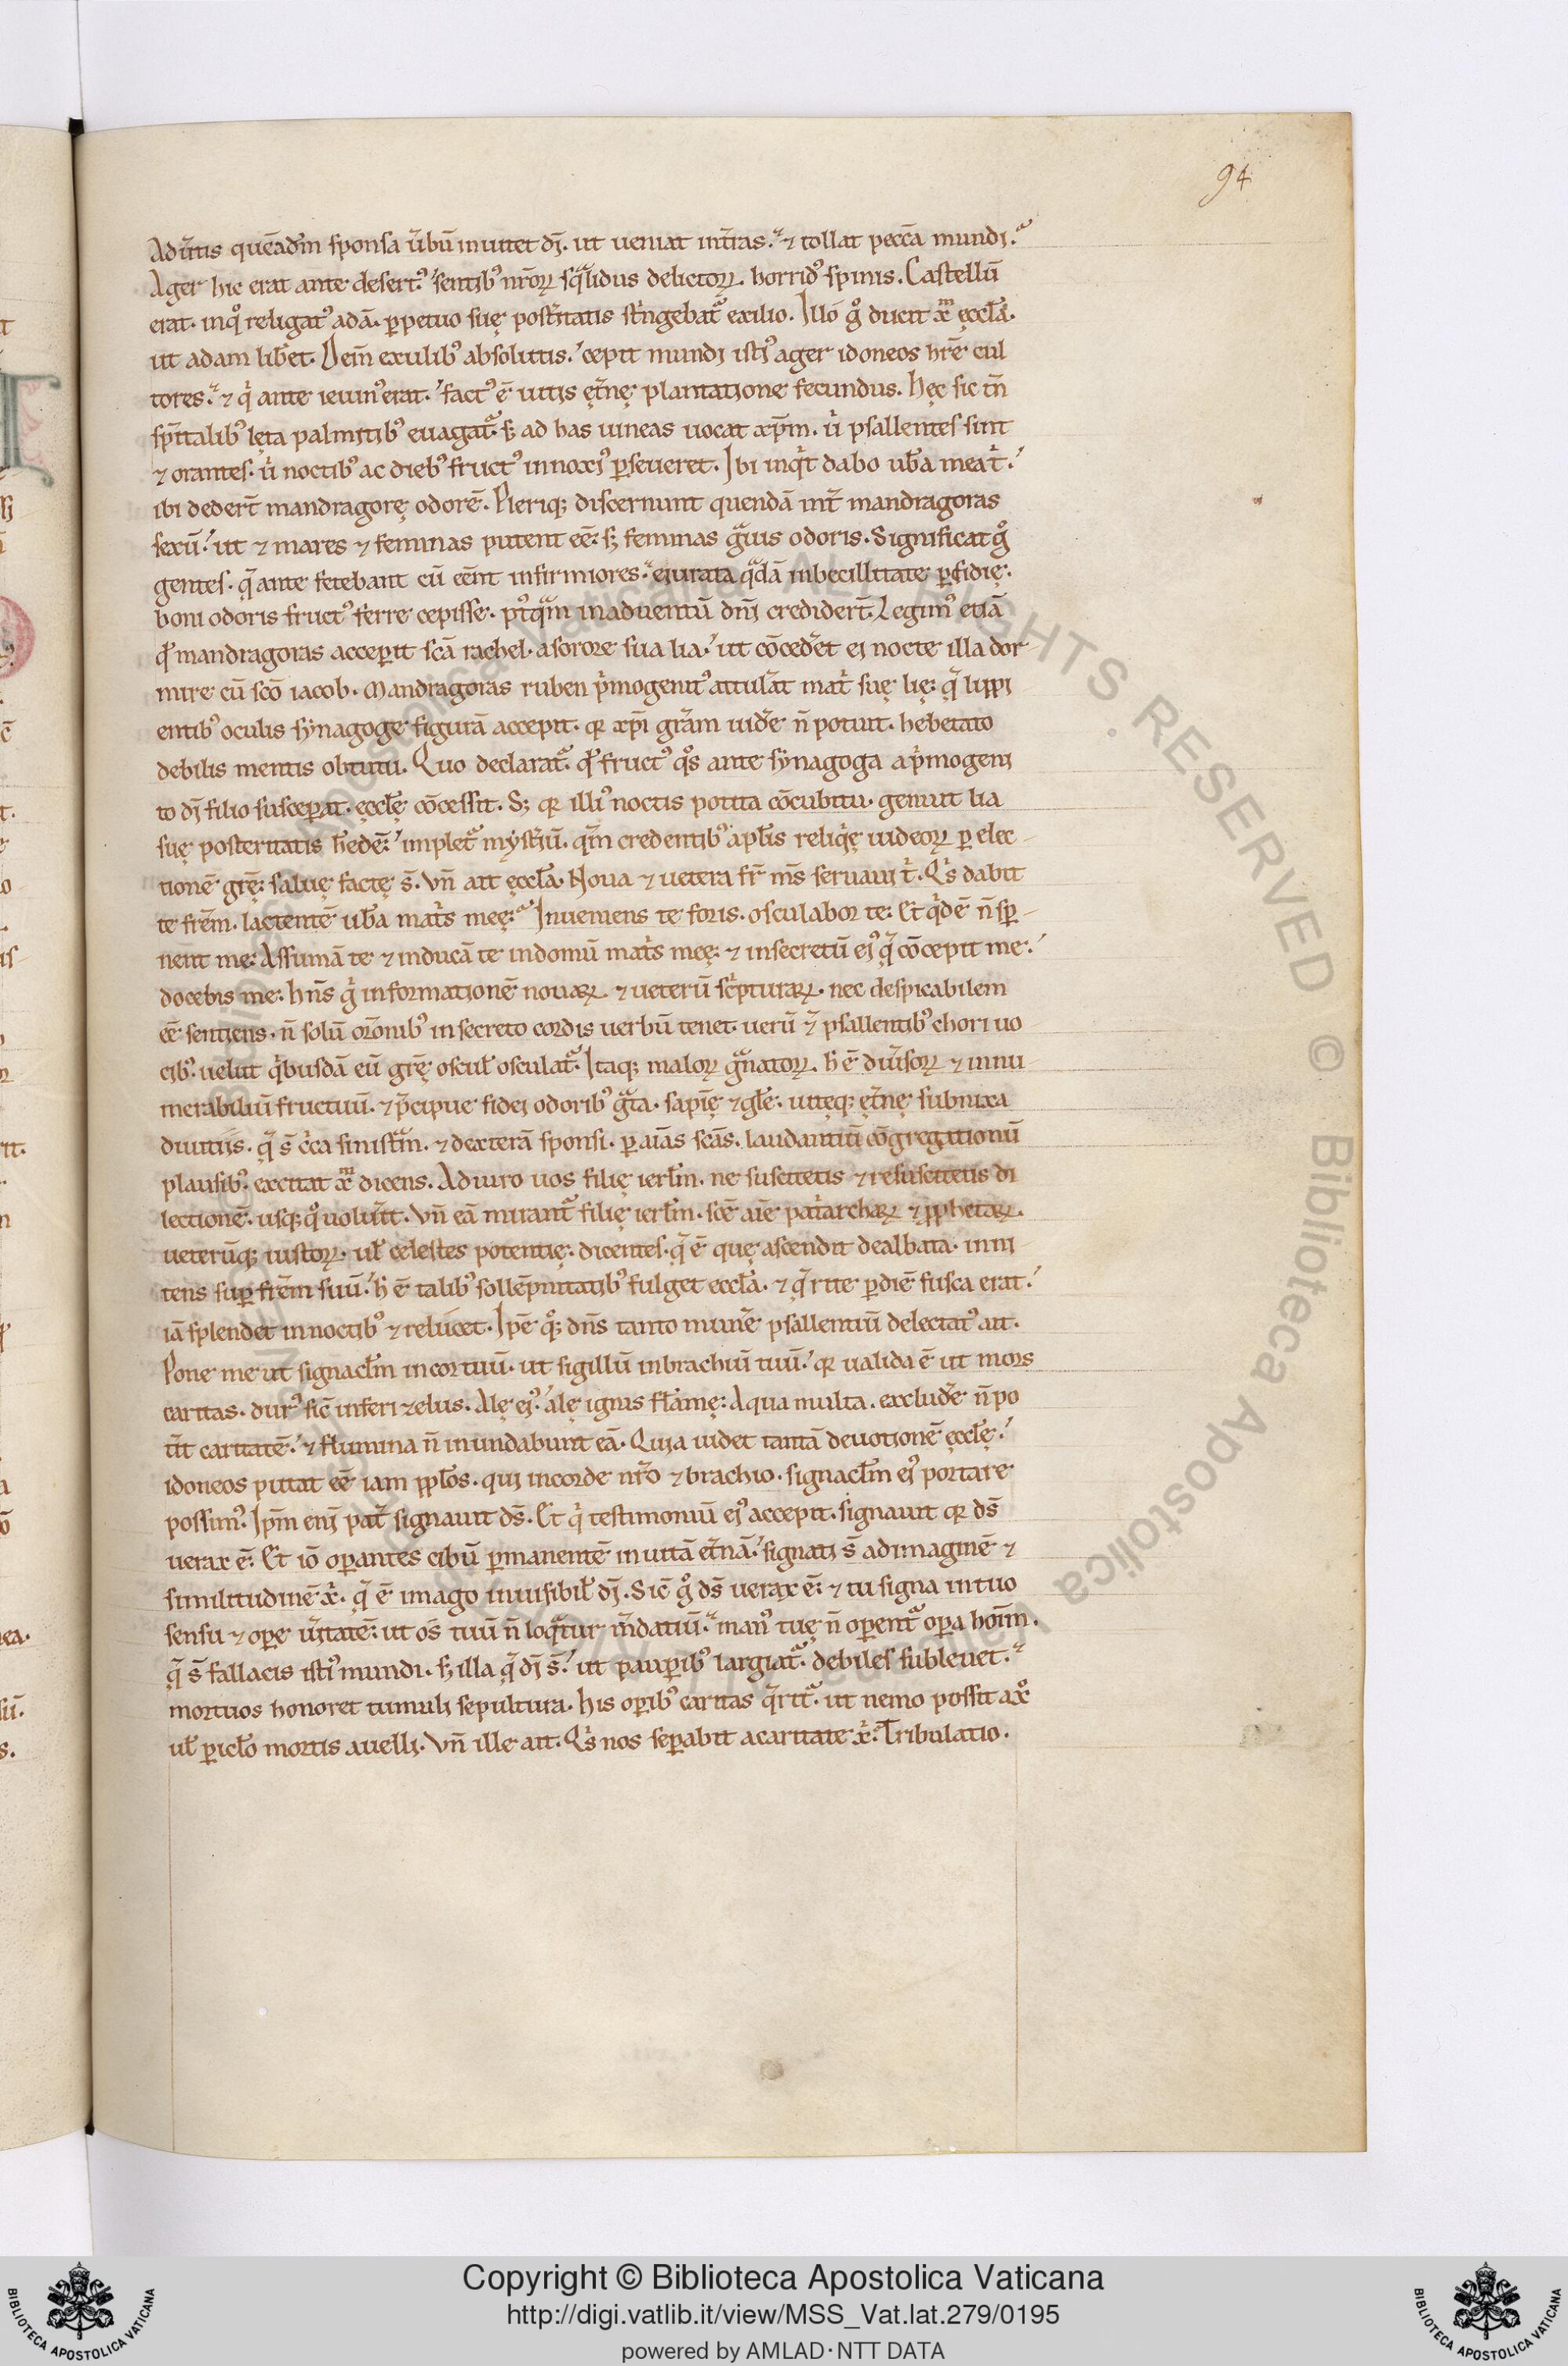 94
Adũtis quēadm̄ sponsa ũbū inuitet dī. ut ueniat in t̃ras. ⁊ tollat peccā mundi.
Ager hic erat ante desertꝰ sentibꝰ nr̄oꝝ sqͣlidus delictoꝝ. horridꝰ spinis. Castellū
erat. in qͦ religatꝰ adā. ꝑpetuo suę post̃itatis st̓ngebat᷑ exilio. Illo gͦ ducit xp̄m ęccl̄a.
ut adam lib̃et. Dein̄ exulibꝰ absolutis. cepit mundi istiꝰ ager idoneos hr̄e cul
tores. ⁊ qͥ ante ieiunꝰ erat. factꝰ ē uitis ęt̃nę plantatione fecundus. Hęc sic tn̄
sp̄italibꝰ lęta palmitibꝰ euagat᷑. sꝫ ad has uineas uocat xp̄m. u͛ psallentes sunt
⁊ orantes. u͛ noctibꝰ ac diebꝰ fructꝰ innoxiꝰ ꝑseueret. Ibi inqͥt dabo ub̃a mea t͛.
ibi dedert̄ mandragorę odorē. Pleriqꝫ discernunt quendā int̃ mandragoras
sexū. ut ⁊ mares ⁊ feminas putent eē. sꝫ feminas gͣuis odoris. Significat gͦ
gentes. q̃ ante fetebant cū eēnt infirmiores. eiurata qͣdā inbecillitate ꝑfidię.
boni odoris fructꝰ ferre cepisse. pꝰtqͣm in aduentū dn̄i credidert̄. Legimꝰ etiā
qd̓ mandragoras acceꝑit scā rachel. a sorore sua lia. ut cōced̃et ei nocte illa dor
mire cū scō iacob. Mandragoras ruben pͥmogenitꝰ attul̃at mat͛ suę lię. q̃ lippi
entibꝰ oculis synagoge figurā accepit. qꝛ xp̄i gr̄am uid̃e n̄ potuit. hebetato
debilis mentis obtutu. Quo declarat᷑. qd̓ fructꝰ qͦs ante synagoga a pͥmogeni
to dī filio susceꝑat. ęccl̄ę cōcessit. Sꝫ qꝛ illiꝰ noctis potita cōcubitu. genuit lia
suę posteritatis h̃edē. implet᷑ myst̃iū. qm̄ credentibꝰ apl̄is reliqͥę iudeoꝝ ꝑ elec
tionē gr̄ę. saluę factę s̄. Vn̄ ait ęccl̄a. Noua ⁊ uetera fr̄ ms̄ seruaui t͛. Qͥs dabit
te fr̄em. lactentē ub̃a mat͛s meę. Inueniens te foris. osculabor te. Et qͥdē n̄ sꝑ
nent me. Assumā te ⁊ inducā te in domū mat͛s meę. ⁊ in secretū eiꝰ q̃ cōcepit me.
docebis me. hn̄s gͥ informationē nouaꝝ ⁊ ueterū sc͛pturaꝝ. nec despicabilem
eē sentiens. n̄ solū or̄onibꝰ in secreto cordis uerbū tenet. uerū ⁊ psallentibꝰ chori uo
cibꝰ. uelut qͥbusdā eū gr̄ę oscul̓ osculat᷑. Itaqꝫ maloꝝ gͣnatoꝝ. h̓ ē diũsoꝝ ⁊ innu
merabiliū fructuū. ⁊ p̄cipue fidei odoribꝰ gͣta. sapię̄ ⁊ gl̄e. uitęqꝫ ęt̃nę subnixa
diuitiis. q̃ s̄ c͛ca sinist̃am. ⁊ dexterā sponsi. ꝑ aīas scās. laudantiū cōgregationū
plausibꝰ. excitat xp̄m dicens. Adiuro uos filię ierl̄m. ne suscitetis ⁊ resuscitetis di
lectionē. usqꝫ qͦ uolũit. Vn̄ eā mirant᷑ filię ierl̄m. scē aīe pat͛archaꝝ ⁊ ꝓphetaꝝ.
ueterūqꝫ iustoꝝ. ul̓ celestes potentię. dicentes. q̃ ē quę ascendit dealbata. inni
tens suꝑ fr̄em suū. h̓ ē talibꝰ sollēpnitatibꝰ fulget eccl̄a. ⁊ q̃ rite ꝑ diē fusca erat.
iā splendet in noctibꝰ ⁊ relucet. Ipē qͦqꝫ dn̄s tanto mun̄e psallentiū delectatꝰ ait.
Pone me ut signacl̄m in cor tuū. ut sigillū in brachiū tuū. qꝛ ualida ē ut mors
caritas. durꝰ sic̄ inferi zelus. Alę eiꝰ. alę ignis flāmę. Aqua multa. exclud̃e n̄ po
t̃it caritatē. ⁊ flumina n̄ inundabunt eā. Quia uidet tantā deuotionē ęccl̄ę.
idoneos putat eē iam ppl̄os. qui in corde nr̄o ⁊ brachio. signacl̄m eiꝰ portare
possimꝰ. Ipm̄ eni pat̃ signauit ds̄. Et qͥ testimoniū eiꝰ accepit. signauit qꝛ ds̄
uerax ē. Et iō oꝑantes cibū ꝑmanentē in uitā et̃nā. signati s̄ ad imaginē ⁊
similitudinē x͛. q̃ ē imago inuisibil̓ dī. Sic̄ gͦ ds̄ uerax ē. ⁊ tu signa in tuo
sensu ⁊ oꝑe ũitatē. ut os tuū n̄ loqͣtur m̄datiū. manꝰ tuę n̄ oꝑent᷑ oꝑa hoīm.
q̃ s̄ fallacis istiꝰ mundi. sꝫ illa q̃ dī s̄. ut pauꝑibꝰ largiat᷑. debiles subleuet.
mortuos honoret tumuli sepultura. his oꝑibꝰ caritas q̃rit᷑. ut nemo possit a xͦ
ul̓ ꝑicl̄o mortis auelli. Vn̄ ille ait. Qͥs nos seꝑabit a caritate x͛. Tribulatio.
Copyright © Biblioteca Apostolica Vaticana
http://digi.vatlib.it/view/MSS_Vat.lat.279/0195
powered by AMLAD·NTT DATA